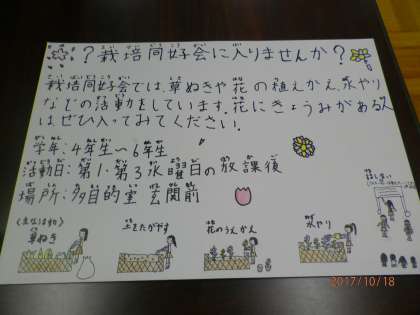 ?栽培同好会に入りませんか?
栽培同好会では、草ぬきや花の植えかえ、水やり
などの活動をしています。花にきょうみがある人
はぜひ入ってみてください。
学年:4年生〜6年生
活動日:第1・第3水曜日の放課後
場所:多目的室玄関前
(主な活動)
草ぬき
土をたがやす
花のうえかえ
水やり
2017/10/18